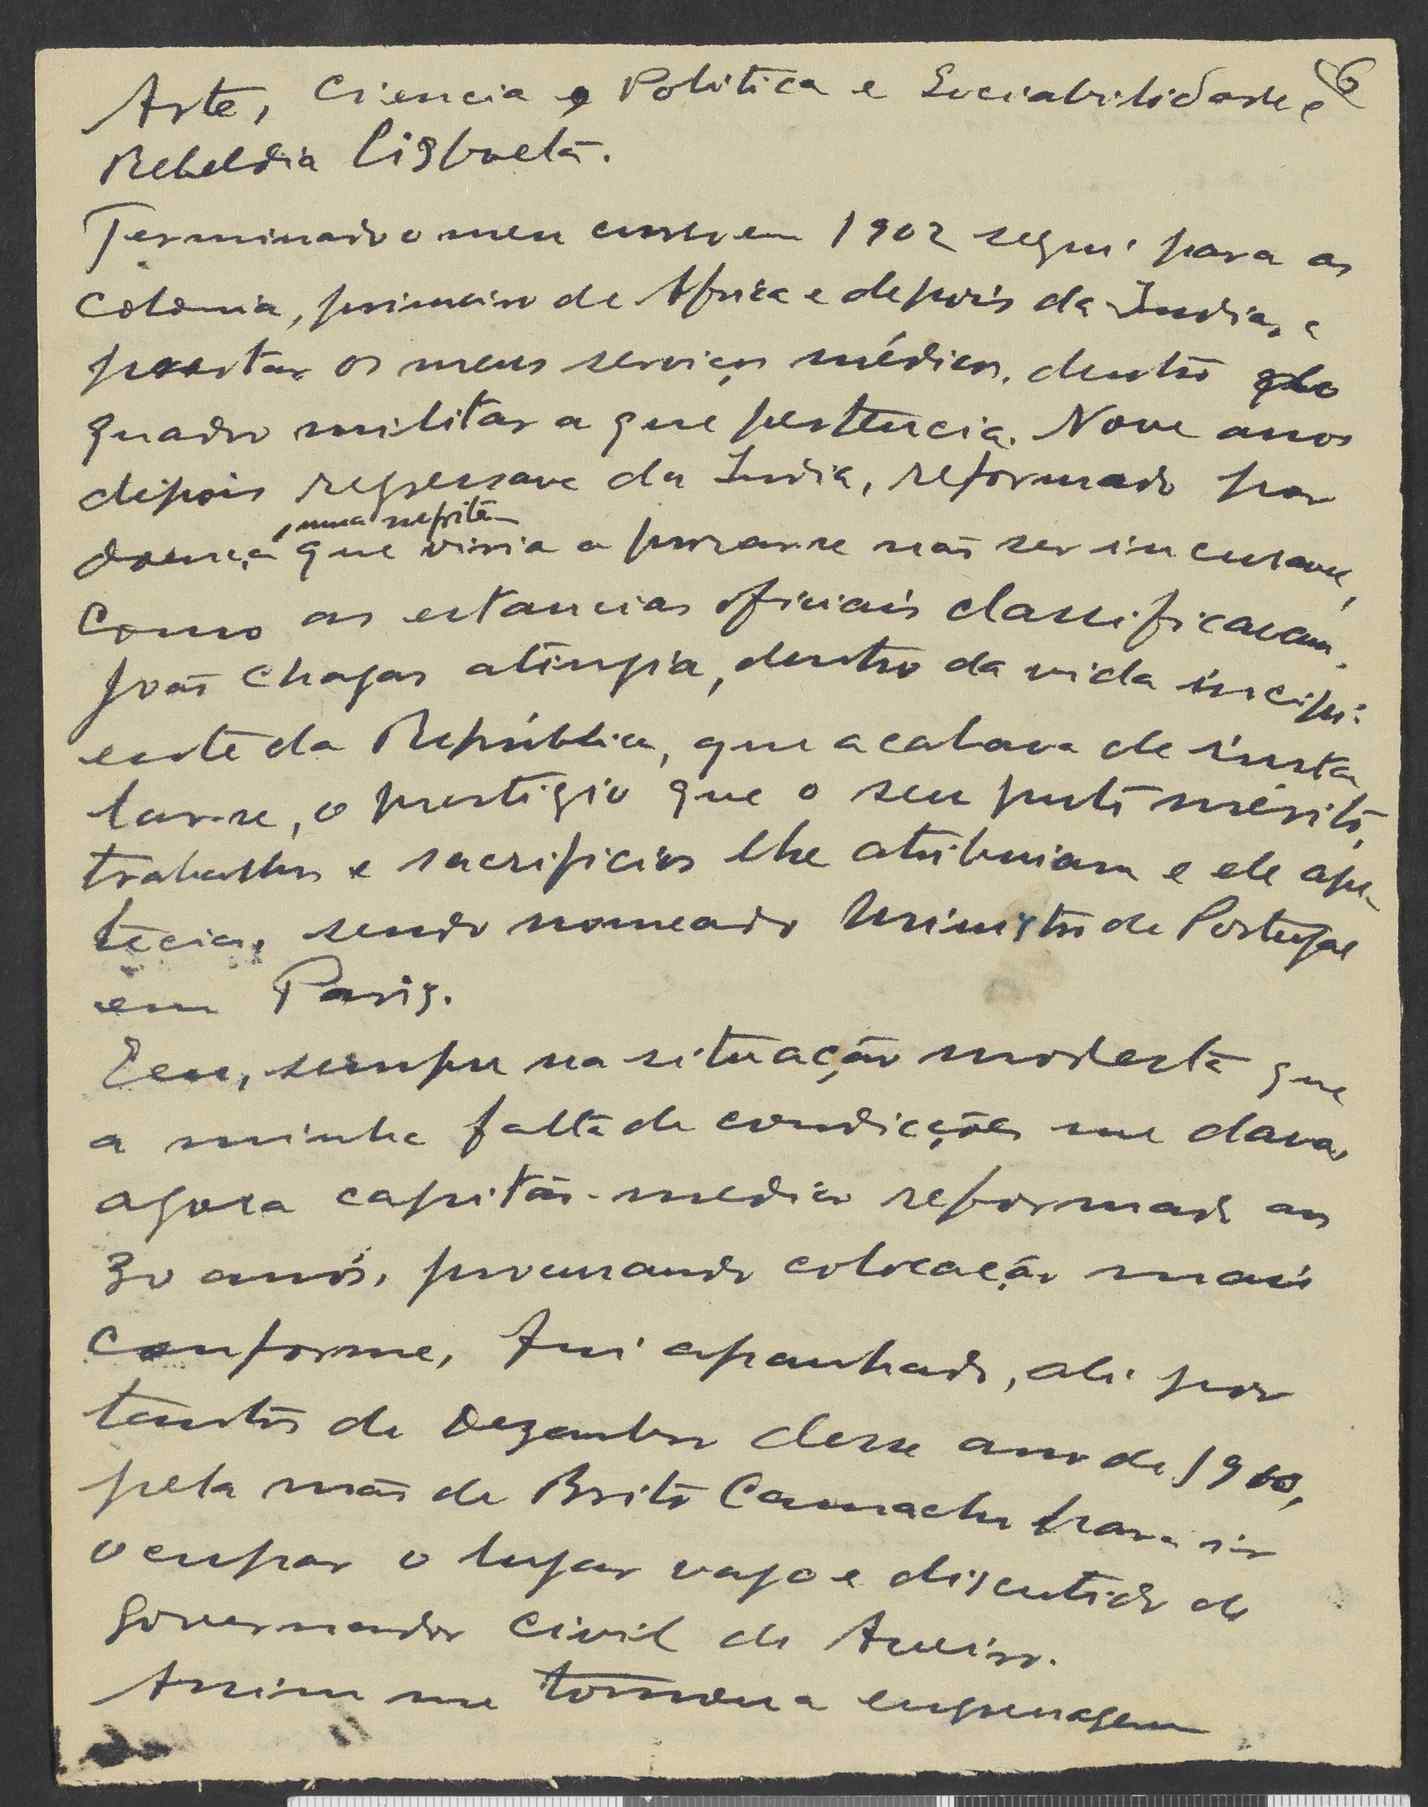 6
Arte, Ciencia e Politica e Sociabilidade e
Rebeldia Lisboeta.
Terminado o meu curso em 1902 segui para as
Colonia, primeiro de Africa e depois da India, a
prestar os meus serviços médicos, dentro do
quadro militar a que pertencia. Nove anos
depois regressava da India, reformado por
doença, uma nefrite que viria a provar-se não ser incuravel,
como as estancias oficiais classificavam.
João Chagas atingia, dentro da vida incipi-
ente da República, que acabava de insta
lar-se, o prestigio que o seu justo mérito,
trabalhos e sacrificios lhe atribuiam e ele ape-
tecia, sendo nomeado Ministro de Portugal
em Paris.
Eeu, sempre na situação modesta que
a minha falta de condicções me dava,
agora capitão-medico reformado aos
30 anos, procurando colocação mais
conforme, fui apanhado, ali por
tantos de Dezembro desse ano de 1910,
pela mão de Brito Camacho para ir
ocupar o lugar vago e discutido de
Governador Civil de Aveiro.
Assim me tomou a engrenagem